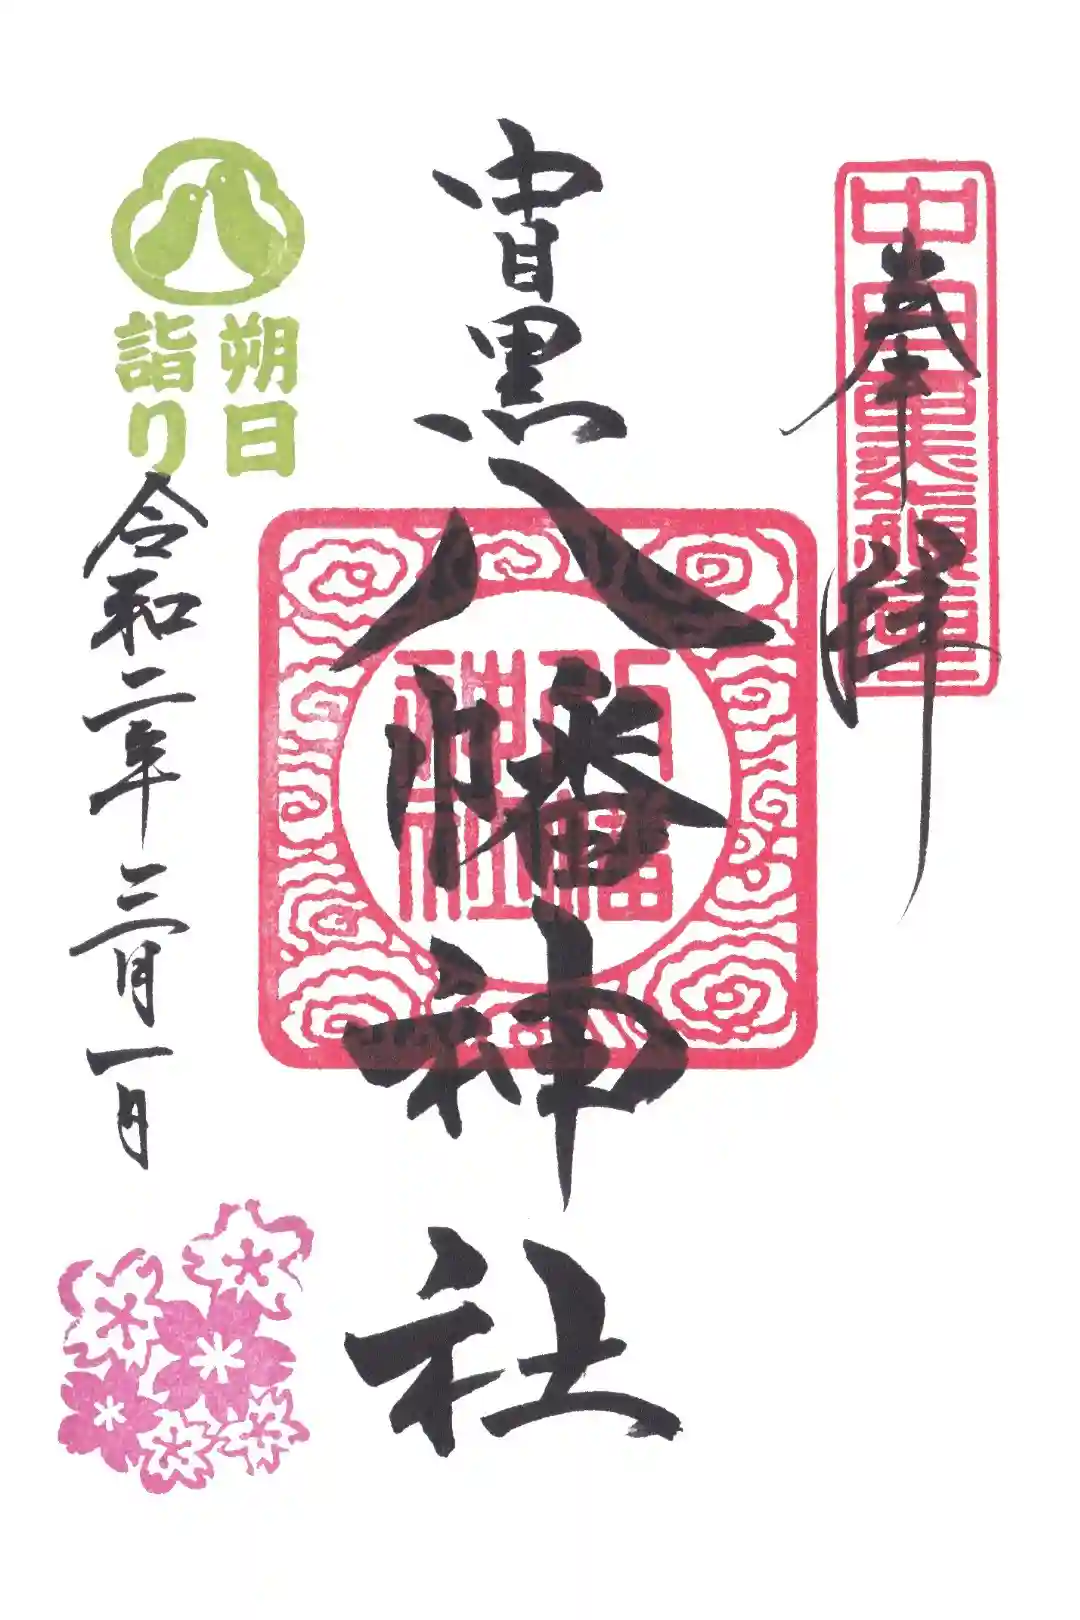 奉拝
中目黒鎮座
中目黒八幡神社
八幡
神社
朔日
詣り
令和二年三月一日